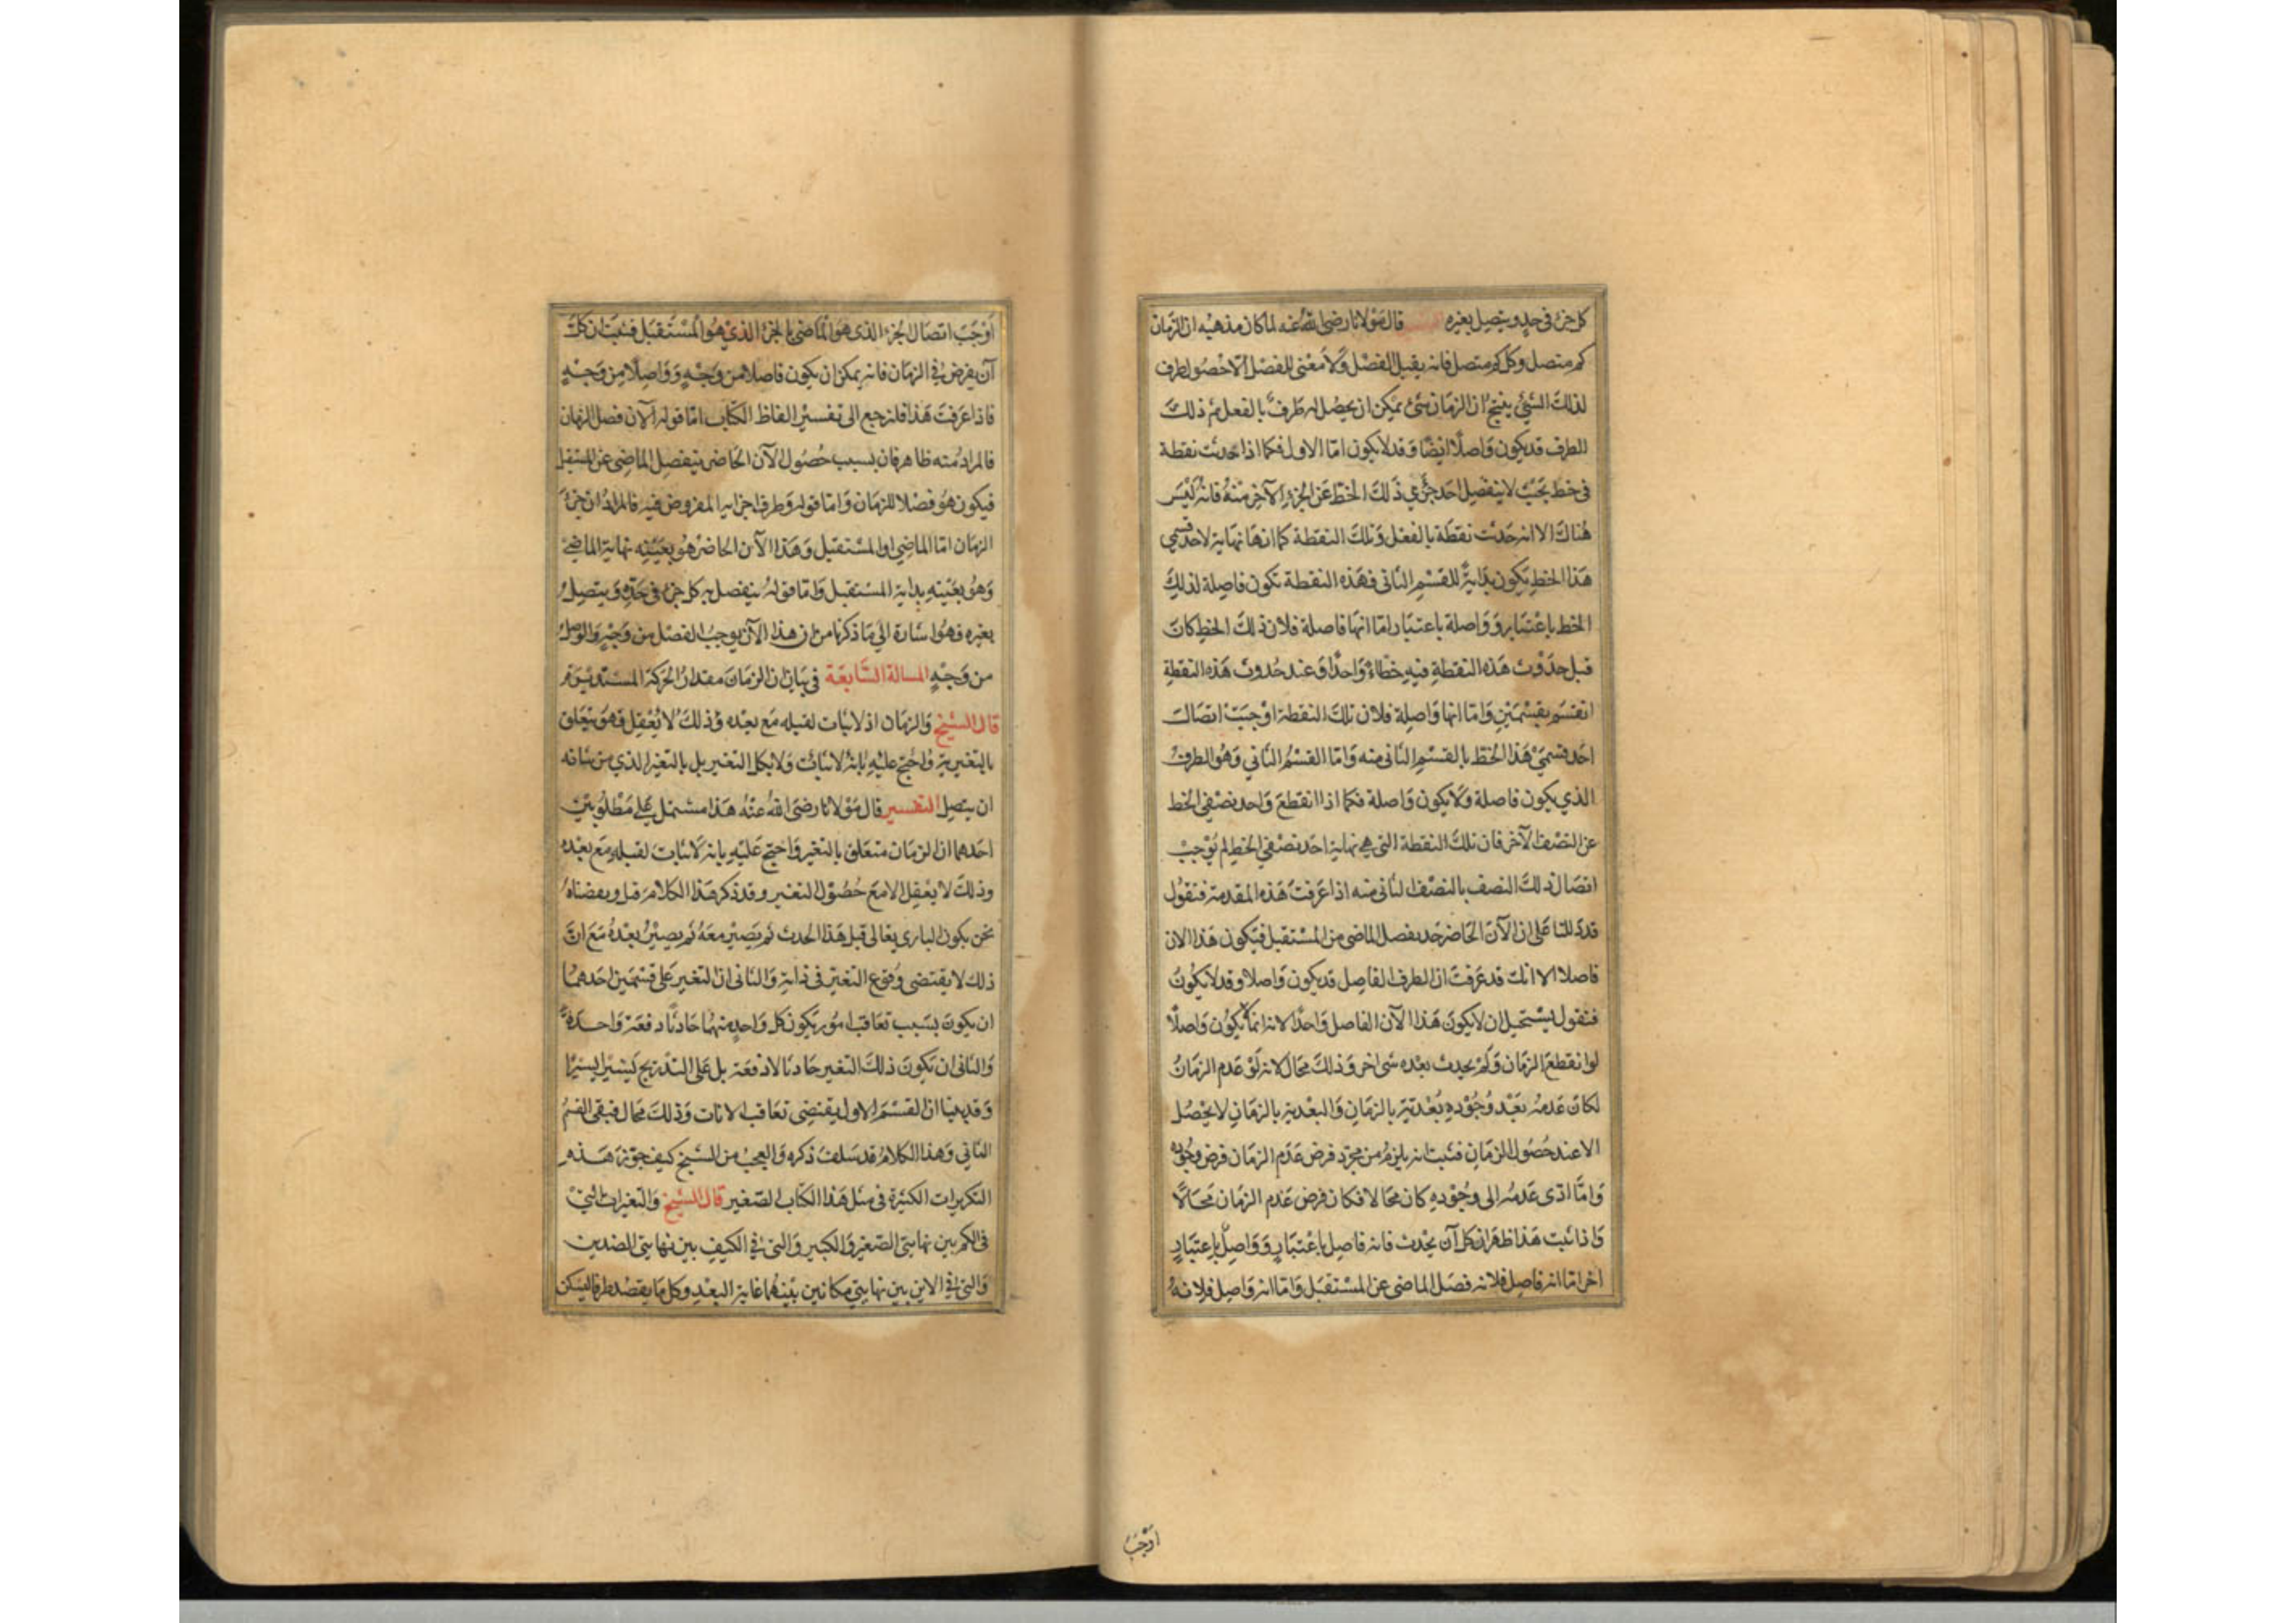 كل جزء فى حده ويتصل بغيره التفسير قال مولانا رضى الله عنه لما كان مذهبه ان الزمان
كم متصل وكل كم متصل فانه يقبل الفصل ولا معنى للفصل الا حصول طرف
لذلك الشئ ينتج ان الزمان شئ يمكن ان يحصل له طرف بالفعل ثم ذلك
الطرف قد يكون واصلا ايضا وقد لا يكون اما الاول فكما اذا حدثت نقطة
فى خط بحيث لا ينفصل احد جزئى ذلك الخط عن الجزء الآخر منه فانه ليس
هناك الا انه حدثت نقطة بالفعل وتلك النقطة كما انها نهاية لاحد قسمى
هذا الخط يكون بداية للقسم الثانى فهذه النقطة تكون فاصلة لذلك
الخط باعتبار وواصلة باعتبار اما انها فاصلة فلان ذلك الخط كان
قبل حدوث هذه النقطة فيه خطا واحدا وعند حدوث هذه النقطة
انقسم بقسمين واما انها واصلة فلان تلك النقطة اوجبت اتصال
احد قسمى هذا الخط بالقسم الثانى منه واما القسم الثانى وهو الطرف
الذي يكون فاصلة ولا يكون واصلة فكما اذا انقطع واحد نصفى الخط
عن النصف الآخر فان تلك النقطة التى هى نهاية احد نصفى الخط لم توجب
اتصال ذلك النصف بالنصف الثانى منه اذا عرفت هذه المقدمة فنقول
قد دللنا على ان الآن الحاضر حد يفصل الماضى من المستقبل فيكون هذا الان
فاصلا الا انك قد عرفت ان الطرف الفاصل قد يكون واصلا وقد لا يكون
فنقول يستحيل ان لا يكون هذا الآن الفاصل واحدا لانه انما يكون واصلا
لو انقطع الزمان ولم يحدث بعده شى اخر وذلك محال لانه لو عدم الزمان
لكان عدمه بعد وجوده بعدية بالزمان والبعدية بالزمان لا يحصل
الا عند حصول الزمان فثبت انه يلزم من مجرد فرض عدم الزمان فرض وجوده
وما ادى عدمه الى وجوده كان محالا فكان فرض عدم الزمان محالا
واذا ثبت هذا ظهر ان كل آن يحدث فانه فاصل باعتبار وواصل باعتبار
اخر اما انه فاصل فلانه فصل الماضى عن المستقبل واما انه واصل فلانه
اوجب
اوجب اتصال الجزء الذى هو الماضى بالجزء الذي هو المستقبل فثبت ان كل
آن يفرض فى الزمان فانه يمكن ان يكون فاصلا من وجه وواصلا من وجه
فاذا عرفت هذا فلنرجع الى تفسير الفاظ الكتاب اما قوله الآن فصل الزمان
فالمراد منه ظاهر فان بسبب حصول الآن الحاضر ينفصل الماضى عن المستقبل
فيكون هو فصلا للزمان واما قوله وطرف اجزائه المفروض فيه فالمراد ان جزء
الزمان اما الماضى او المستقبل وهذا الآن الحاضر هو بعينه نهاية الماضى
وهو بعينه بداية المستقبل واما قوله ينفصل به كل جزء فى حده ويتصل
بغيره فهو اشارة الى ما ذكرنا من ان هذا الآن يوجب الفصل من وجه والوصل
من وجه المسالة السابعة فى بيان ان الزمان مقدار الحركة المستديرة
قال الشيخ والزمان اذ لا ثبات لقبله مع بعده وذلك لا يعقل فهو يتعلق
بالتغير واحتج عليه بانه لا ثبات ولا بكل التغير بل بالتغير الذي من شانه
ان يتصل التفسير قال مولانا رضى الله عنه هذا مشتمل على مطلوبين
احدهما ان الزمان متعلق بالتغير واحتج عليه بانه لا ثبات لقبله مع بعده
وذلك لا يعقل الا مع حصول التغير وقد ذكر هذا الكلام قبل ونقضناه
نحن بكون البارى تعالى قبل هذا الحدث ثم يصير معه ثم يصير بعده مع ان
ذلك لا يقتضى وقوع التغير فى ذاته والثانى ان التغير على قسمين احدهما
ان يكون بسبب تعاقب امور يكون كل واحد منها حادثا دفعة واحدة
والثانى ان تكون ذلك التغير حادثا لا دفعة بل على التدريج يسيرا يسيرا
وقد بينا ان القسم الاول يقتضى تعاقب الانات وذلك محال فبقى القسم
الثانى وهذا الكلام قد سلف ذكره والعجب من الشيخ كيف جوز هذه
التكريرات الكثيرة فى مثل هذا الكتاب الصغير قال الشيخ والتغيرات التى
فى الكم بين نهايتى الصغير والكبير والتى فى الكيف بين نهايتى الضدين
والتى فى الاين بين نهايتى مكانين بينهما غاية البعد وكل ما يقصد طرفا ليسكن